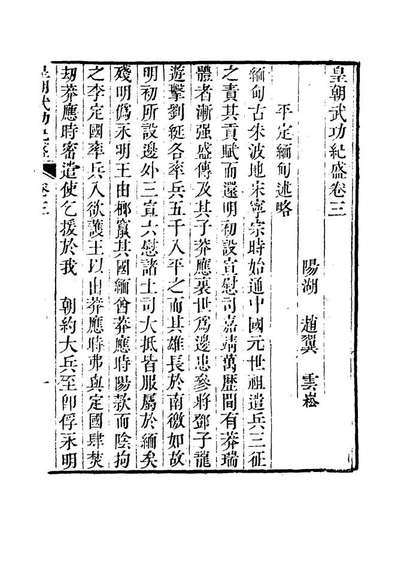 皇朝武功紀盛卷三
陽湖　趙翼　雲崧
平定緬甸述略
緬甸古朱波地宋寧宗時始通中國元世祖遣兵三征
之責其貢賦而還明初設宣慰司嘉靖萬歷間有莽瑞
體者漸强盛傳及其子莽應裏世爲邊患參將鄧子龍
遊擊劉綎各率兵五千入平之而其雄長於南徼如故
明初所設邊外三宣六慰諸土司大抵皆服屬於緬矣
殘明僞永明王由榔竄其國緬酋莽應時陽款而陰拘
之李定國率兵入欲護王以出莽應時弗與定國肆焚
劫莽應時密遣使乞援於我　朝約大兵至卽俘永明
皇朝武功紀盛　卷三　一